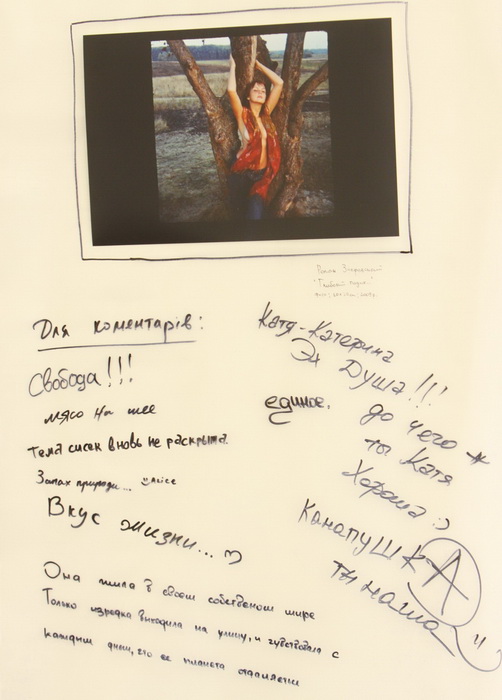 Для коментарів:
Свобода!!!
мясо на шее
Тема сисек вновь не раскрыта.
Запах природы... Alice
Вкус жизни...
Она жила в своем собственом мире
Только изредка выходила на улицу, и чувствовала с
каждым днем, что ее планета
Катя-Катерина
Эх Душа!!!
единое.
до чего
ты Катя
Хороша :)
КанапУШКА
ты наша